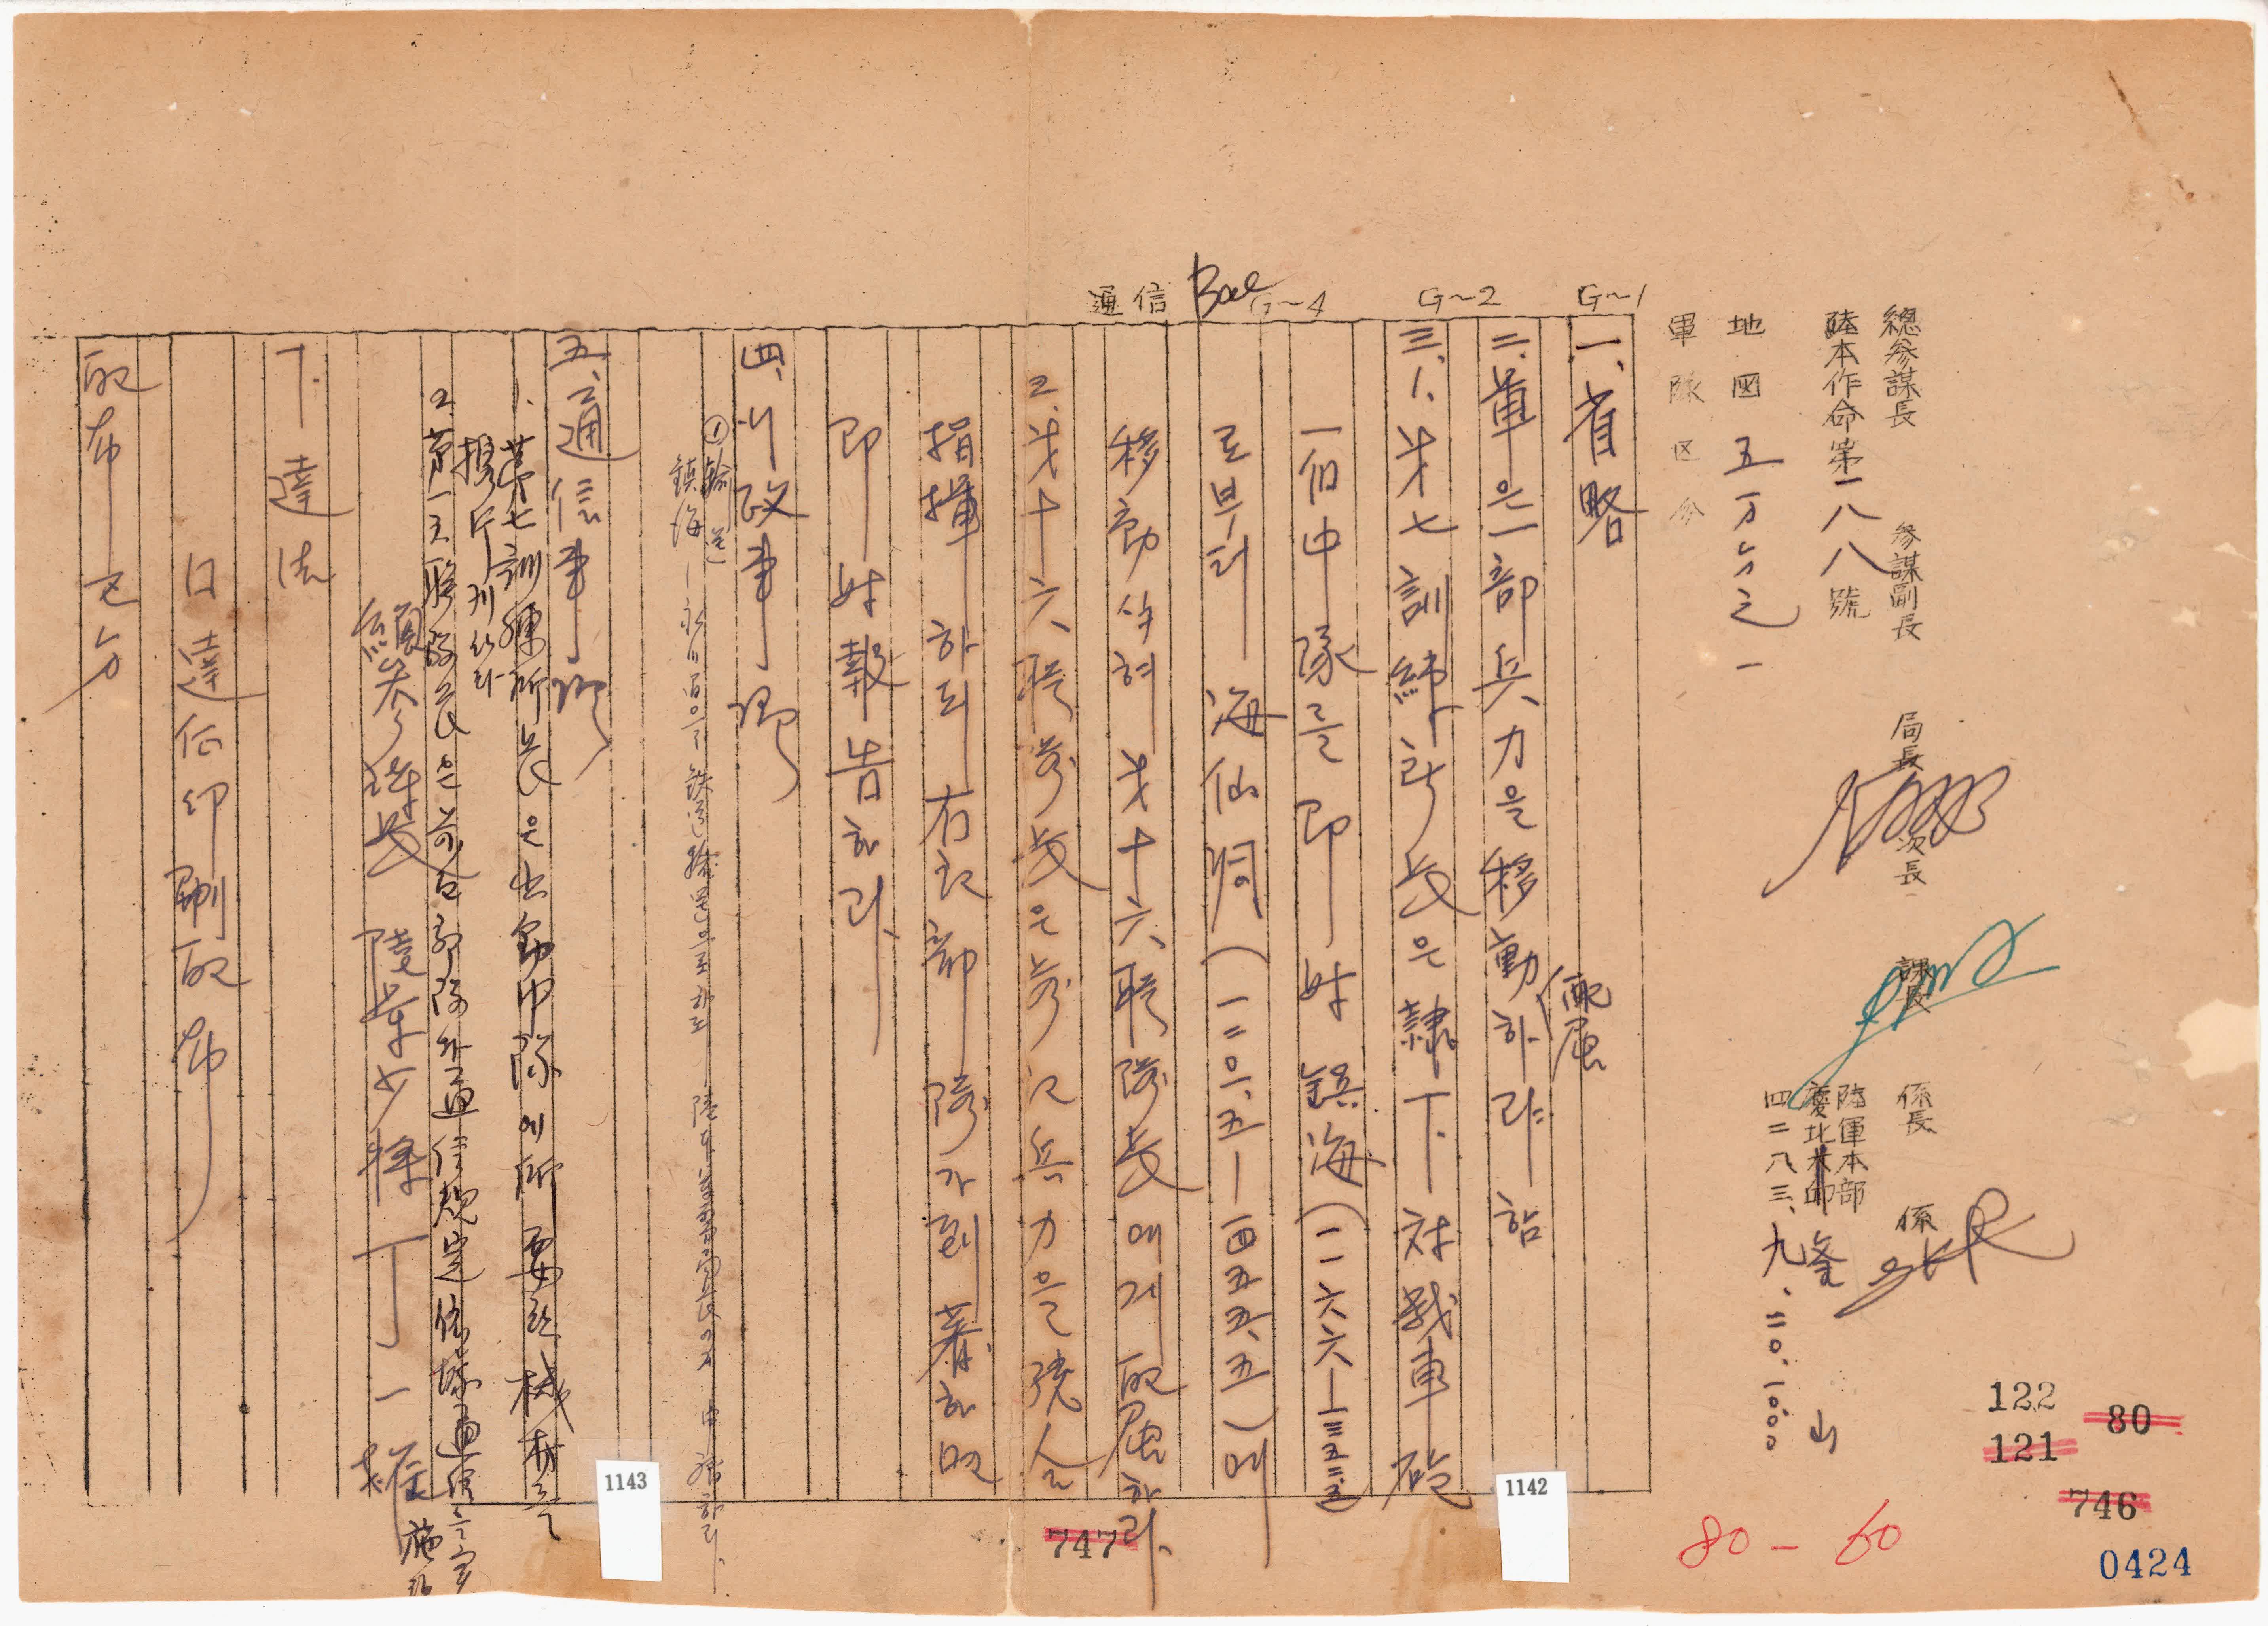 總參謀長 參謀副長 局長 次長 課長 係長 係
陸本作命第一八八號
陸軍本部
慶北大邱
釜山
四二八三、九、二0、1000
地図 五万分之一
軍隊区分
G~1
G~2
G~4
Bae
通信
一、省略
二、軍은 一部兵力을 移動하라 함
配屬
三、1、才七訓練所長은 隷下 対戦車砲
一個中隊를 即時 鎮海(一一六六—一三五二.五)
로부터 海仙洞(一二0一.五—一四五五.五)에
移動식혀 才十六聯隊長에게 配屬하라
2、才十六聯隊長은 前記 兵力을 統合
指揮하되 右記部隊가 到着하면
即時報告하라
四、行政事項
①輸送은
鎮海—永川间은 鉄道輸送으로 하되 陸本
申請하라
五、通信事項
1、第七訓練所長은 出動中隊에 所要 機材를
携行케 하라
2、第一六聯隊長은 前記部隊와 通信規定 依據 通信을 実
施하라
總參謀長 陸軍少将 丁一權
下達法
口達后印刷配布
配布区分
1142
1143
122
121
80
746
747
80-60
0424